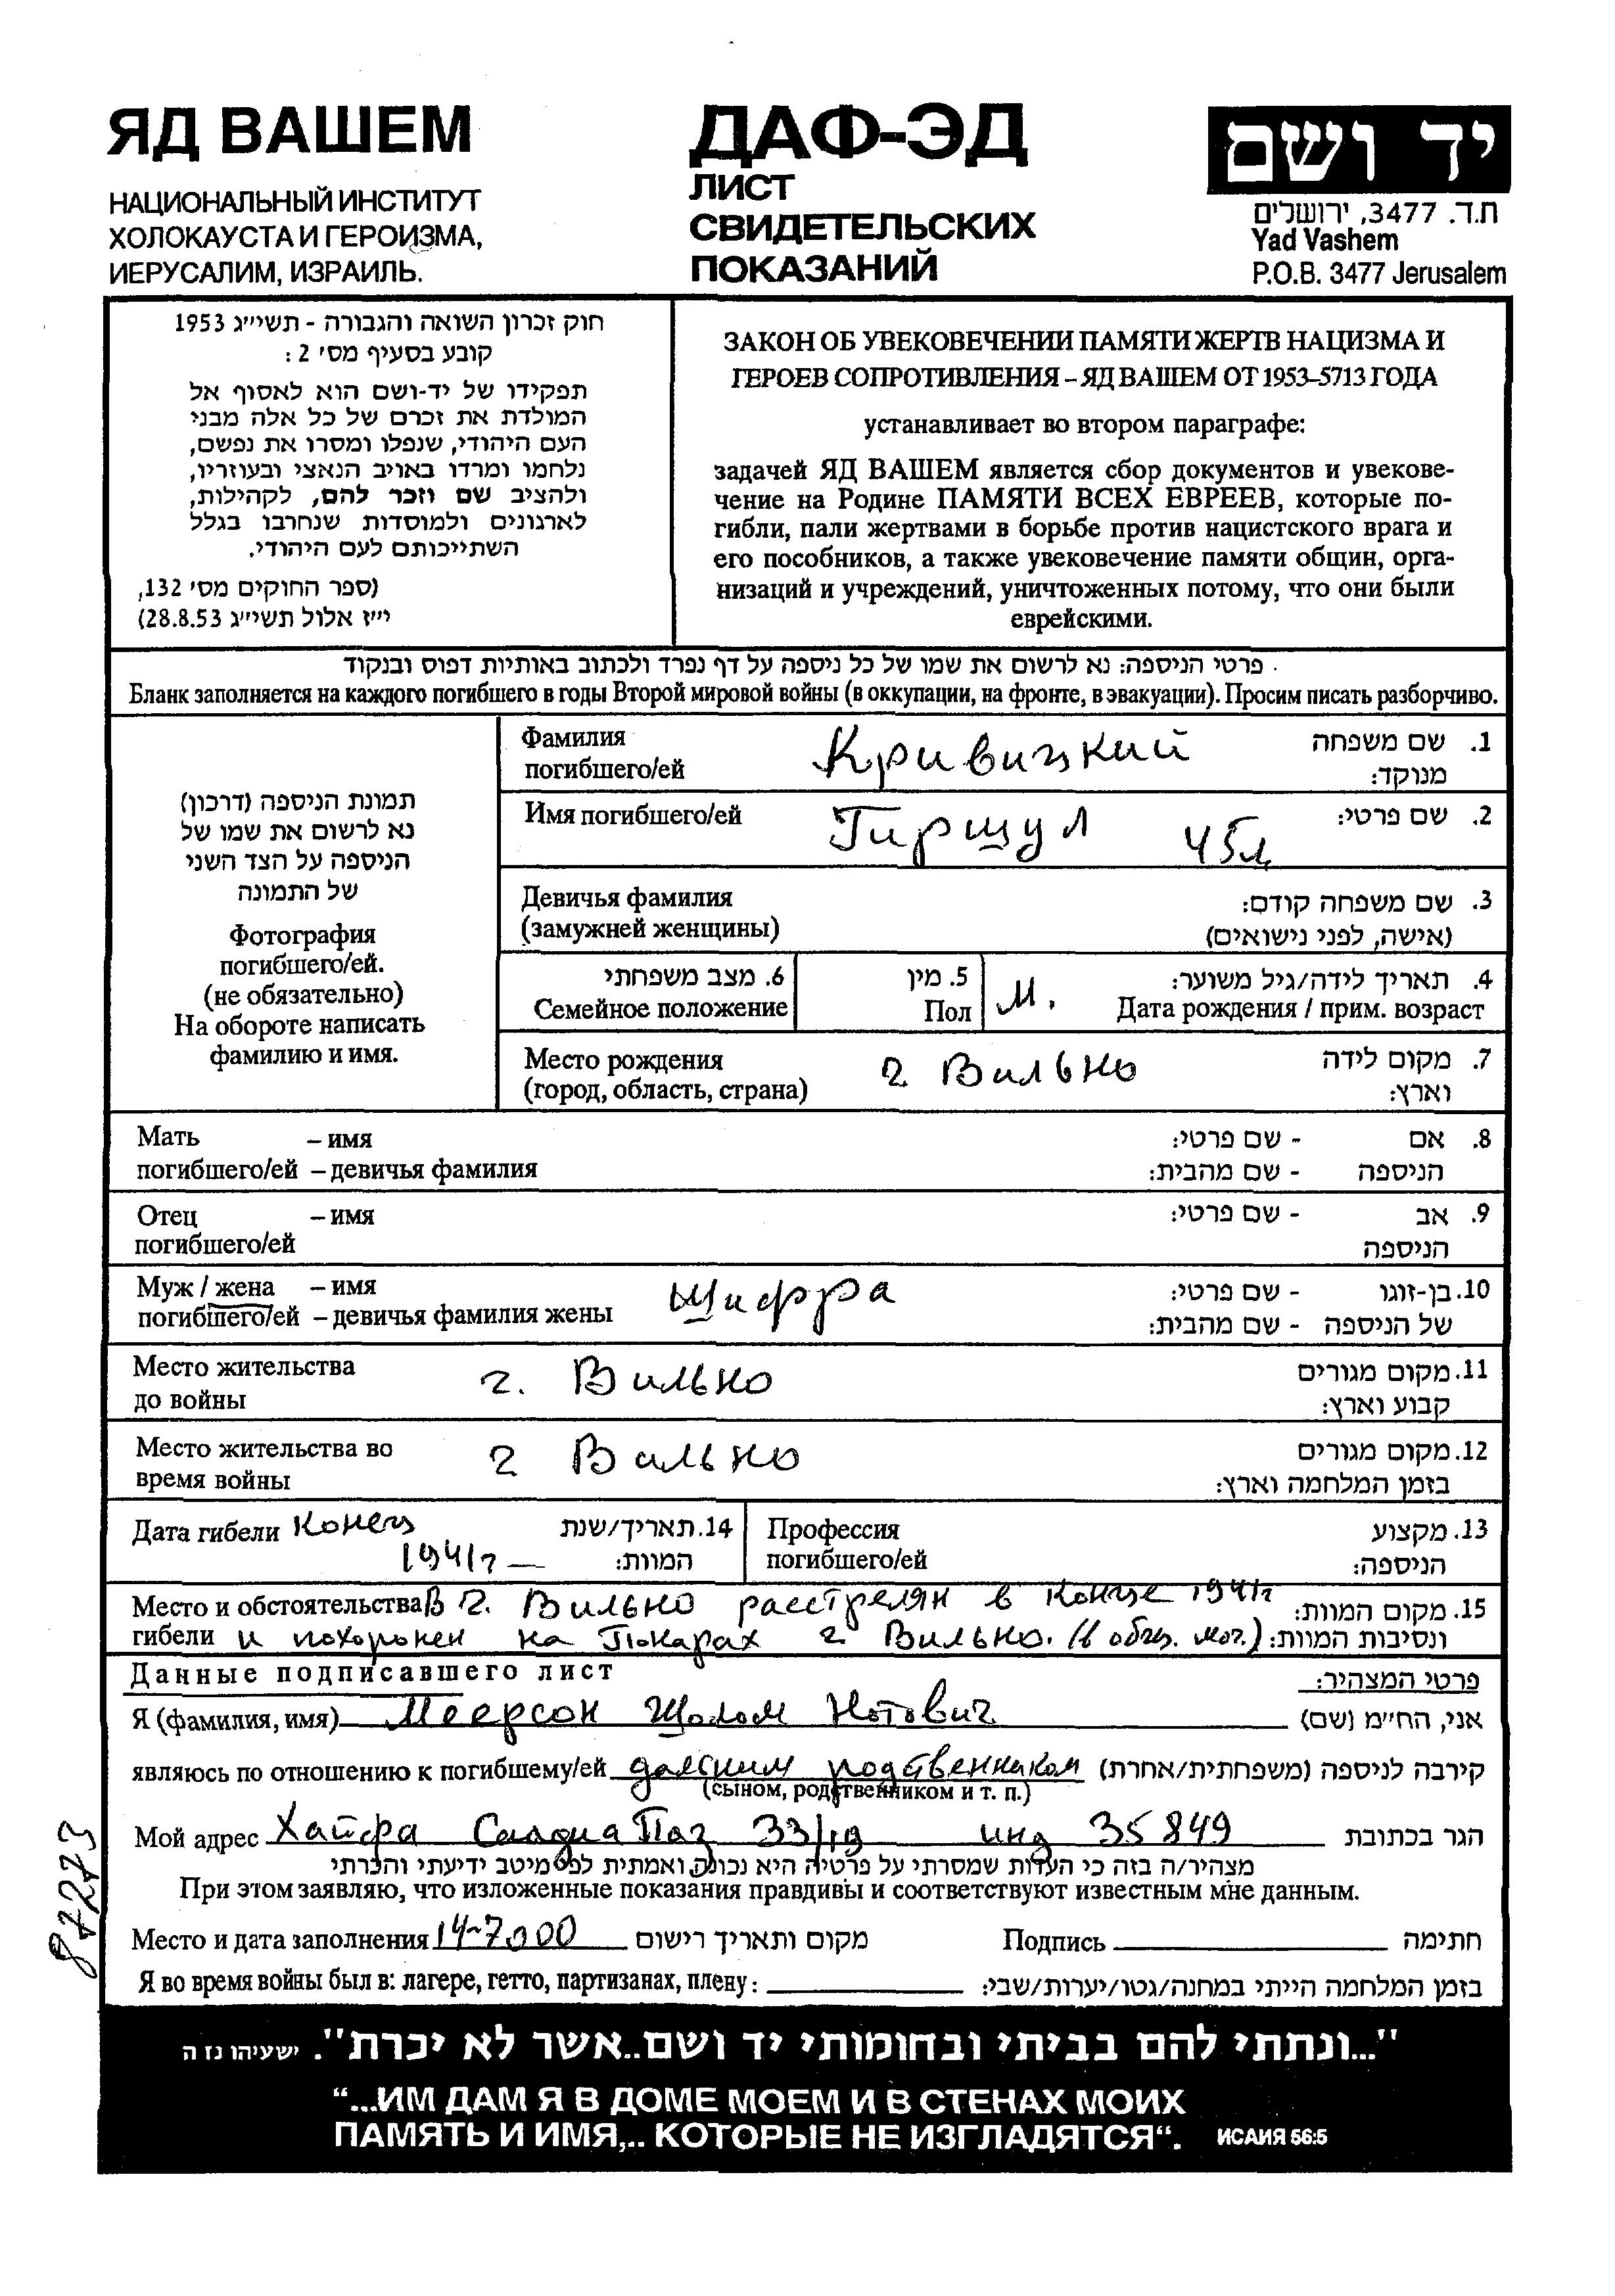 ЯД ВАШЕМ
НАЦИОНАЛЬНЫЙ ИНСТИТУТ
ХОЛОКАУСТА И ГЕРОИЗМА,
ИЕРУСАЛИМ, ИЗРАИЛЬ.
ДАФ-ЭД
ЛИСТ
СВИДЕТЕЛЬСКИХ
ПОКАЗАНИЙ
יד ושם
ת.ד. 3477, ירושלים
Yad Vashem
P.O.B. 3477 Jerusalem
חוק זכרון השואה והגבורה - תשי״ג 1953
קובע בסעיף מס׳ 2 :
תפקידו של יד-ושם הוא לאסוף אל
המולדת את זכרם של כל אלה מבני
העם היהודי, שנפלו ומסרו את נפשם,
נלחמו ומרדו באויב הנאצי ובעוזריו,
ולהציב שם וזכר להם, לקהילות,
לארגונים ולמוסדות שנחרבו בגלל
השתייכותם לעם היהודי.
(ספר החוקים מס׳ 132,
י״ז אלול תשי״ג 28.8.53)
ЗАКОН ОБ УВЕКОВЕЧЕНИИ ПАМЯТИ ЖЕРТВ НАЦИЗМА И
ГЕРОЕВ СОПРОТИВЛЕНИЯ – ЯД ВАШЕМ ОТ 1953–5713 ГОДА
устанавливает во втором параграфе:
задачей ЯД ВАШЕМ является сбор документов и увекове-
чение на Родине ПАМЯТИ ВСЕХ ЕВРЕЕВ, которые по-
гибли, пали жертвами в борьбе против нацистского врага и
его пособников, а также увековечение памяти общин, орга-
низаций и учреждений, уничтоженных потому, что они были
еврейскими.
פרטי הניספה: נא לרשום את שמו של כל ניספה על דף נפרד ולכתוב באותיות דפוס ובנקוד
Бланк заполняется на каждого погибшего в годы Второй мировой войны (в оккупации, на фронте, в эвакуации). Просим писать разборчиво.
תמונת הניספה (דרכון)
נא לרשום את שמו של
הניספה על הצד השני
של התמונה
Фотография
погибшего/ей.
(не обязательно)
На обороте написать
фамилию и имя.
Фамилия Кривицкий 1. שם משפחה
погибшего/ей מנוקד:
Имя погибшего/ей Гиршул 45л 2. שם פרטי:
Девичья фамилия 3. שם משפחה קודם:
(замужней женщины) (אישה, לפני נישואים)
6. מצב משפחתי 5. מין М. 4. תאריך לידה/גיל משוער:
Семейное положение Пол Дата рождения / прим. возраст
Место рождения г Вильно 7. מקום לידה
(город, область, страна) וארץ:
Мать – имя 8. אם - שם פרטי:
погибшего/ей – девичья фамилия הניספה - שם מהבית:
Отец – имя 9. אב - שם פרטי:
погибшего/ей הניספה
Муж / жена – имя Шифра 10. בן-זוגו - שם פרטי:
погибшего/ей – девичья фамилия жены של הניספה - שם מהבית:
Место жительства г. Вильно 11. מקום מגורים
до войны קבוע וארץ:
Место жительства во г Вильно 12. מקום מגורים
время войны בזמן המלחמה וארץ:
Дата гибели Конец 14. תאריך/שנת Профессия 13. מקצוע
1941г — המוות: погибшего/ей הניספה:
Место и обстоятельства В г. Вильно расстрелян в Конце 1941г 15. מקום המוות:
гибели и похоронен на Понарах г. Вильно. (в общ. мог.) ונסיבות המוות:
Данные подписавшего лист פרטי המצהיר:
Я (фамилия, имя) Меерсон Шолом Нотович אני, הח״מ (שם)
являюсь по отношению к погибшему/ей дальним родственником קירבה לניספה (משפחתית/אחרת)
(сыном, родственником и т. п.)
Мой адрес Хайфа Саадиа Паз 33/19 инд 35849 הגר בכתובת
מצהיר/ה בזה כי העדות שמסרתי על פרטיה היא נכונה ואמתית לפי מיטב ידיעתי והכרתי
При этом заявляю, что изложенные показания правдивы и соответствуют известным мне данным.
Место и дата заполнения 14-7000 מקום ותאריך רישום Подпись חתימה
Я во время войны был в: лагере, гетто, партизанах, плену: בזמן המלחמה הייתי במחנה/גטו/יערות/שבי:
87273
"...ונתתי להם בביתי ובחומותי יד ושם..אשר לא יכרת". ישעיהו נז ה
“...ИМ ДАМ Я В ДОМЕ МОЕМ И В СТЕНАХ МОИХ
ПАМЯТЬ И ИМЯ,.. КОТОРЫЕ НЕ ИЗГЛАДЯТСЯ“. ИСАИЯ 56:5